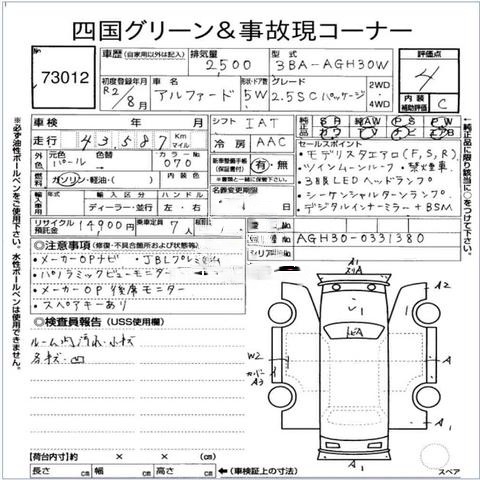 四国グリーン&事故現コーナー
73012
車歴 (自家用以外は記入)
排気量
2500
型式
3BA-AGH30W
評価点
4
初度登録年月
R2/8月
車名
アルファード
形状・ドア数
5W
グレード
2.5SCパッケージ
2WD
・
4WD
内装
補助評価
C
車検 年 月
シフト
IAT
純正装備品
SR AW PS PW
走行 43,587 Km
マイル
冷房
AAC
セールスポイント
・モデリスタエアロ(F,S,R)
・ツインムーンルーフ・禁煙車
・3眼LEDヘッドランプ
・シーケンシャルターンランプ
・デジタルインナーミラー+BSM
外色
元色 色替
パール→
カラーNo
070
新車整備手帳
(保証書付) 有・無
燃料
ガソリン・軽油・( )
名義変更期限
月 日
輸入車用
輸入区分
ハンドル
ディーラー・並行
左・右
リサイクル
預託金
14,900円
乗車定員
7人
AGH30-0331380
シリアル
◎注意事項 (修復・不具合箇所および状態等)
・メーカーOPナビ ・JBLプレミアム
・パノラミックビューモニター
・メーカーOP後席モニター
・スペアキーあり
◎検査員報告 (USS使用欄)
ルーム内汚れ・小キズ
各キズ・凹
A1
A2
W2
カバー
A3
A
A1
A1
A1
スペア
【荷台内寸】 × ×
長さ cm 幅 cm 高さ cm ←(車検証上の寸法)
※必ず油性ボールペンをご使用下さい。水性ボールペンは使用できません。
←純正品に限り該当項目に○をつけて下さい。